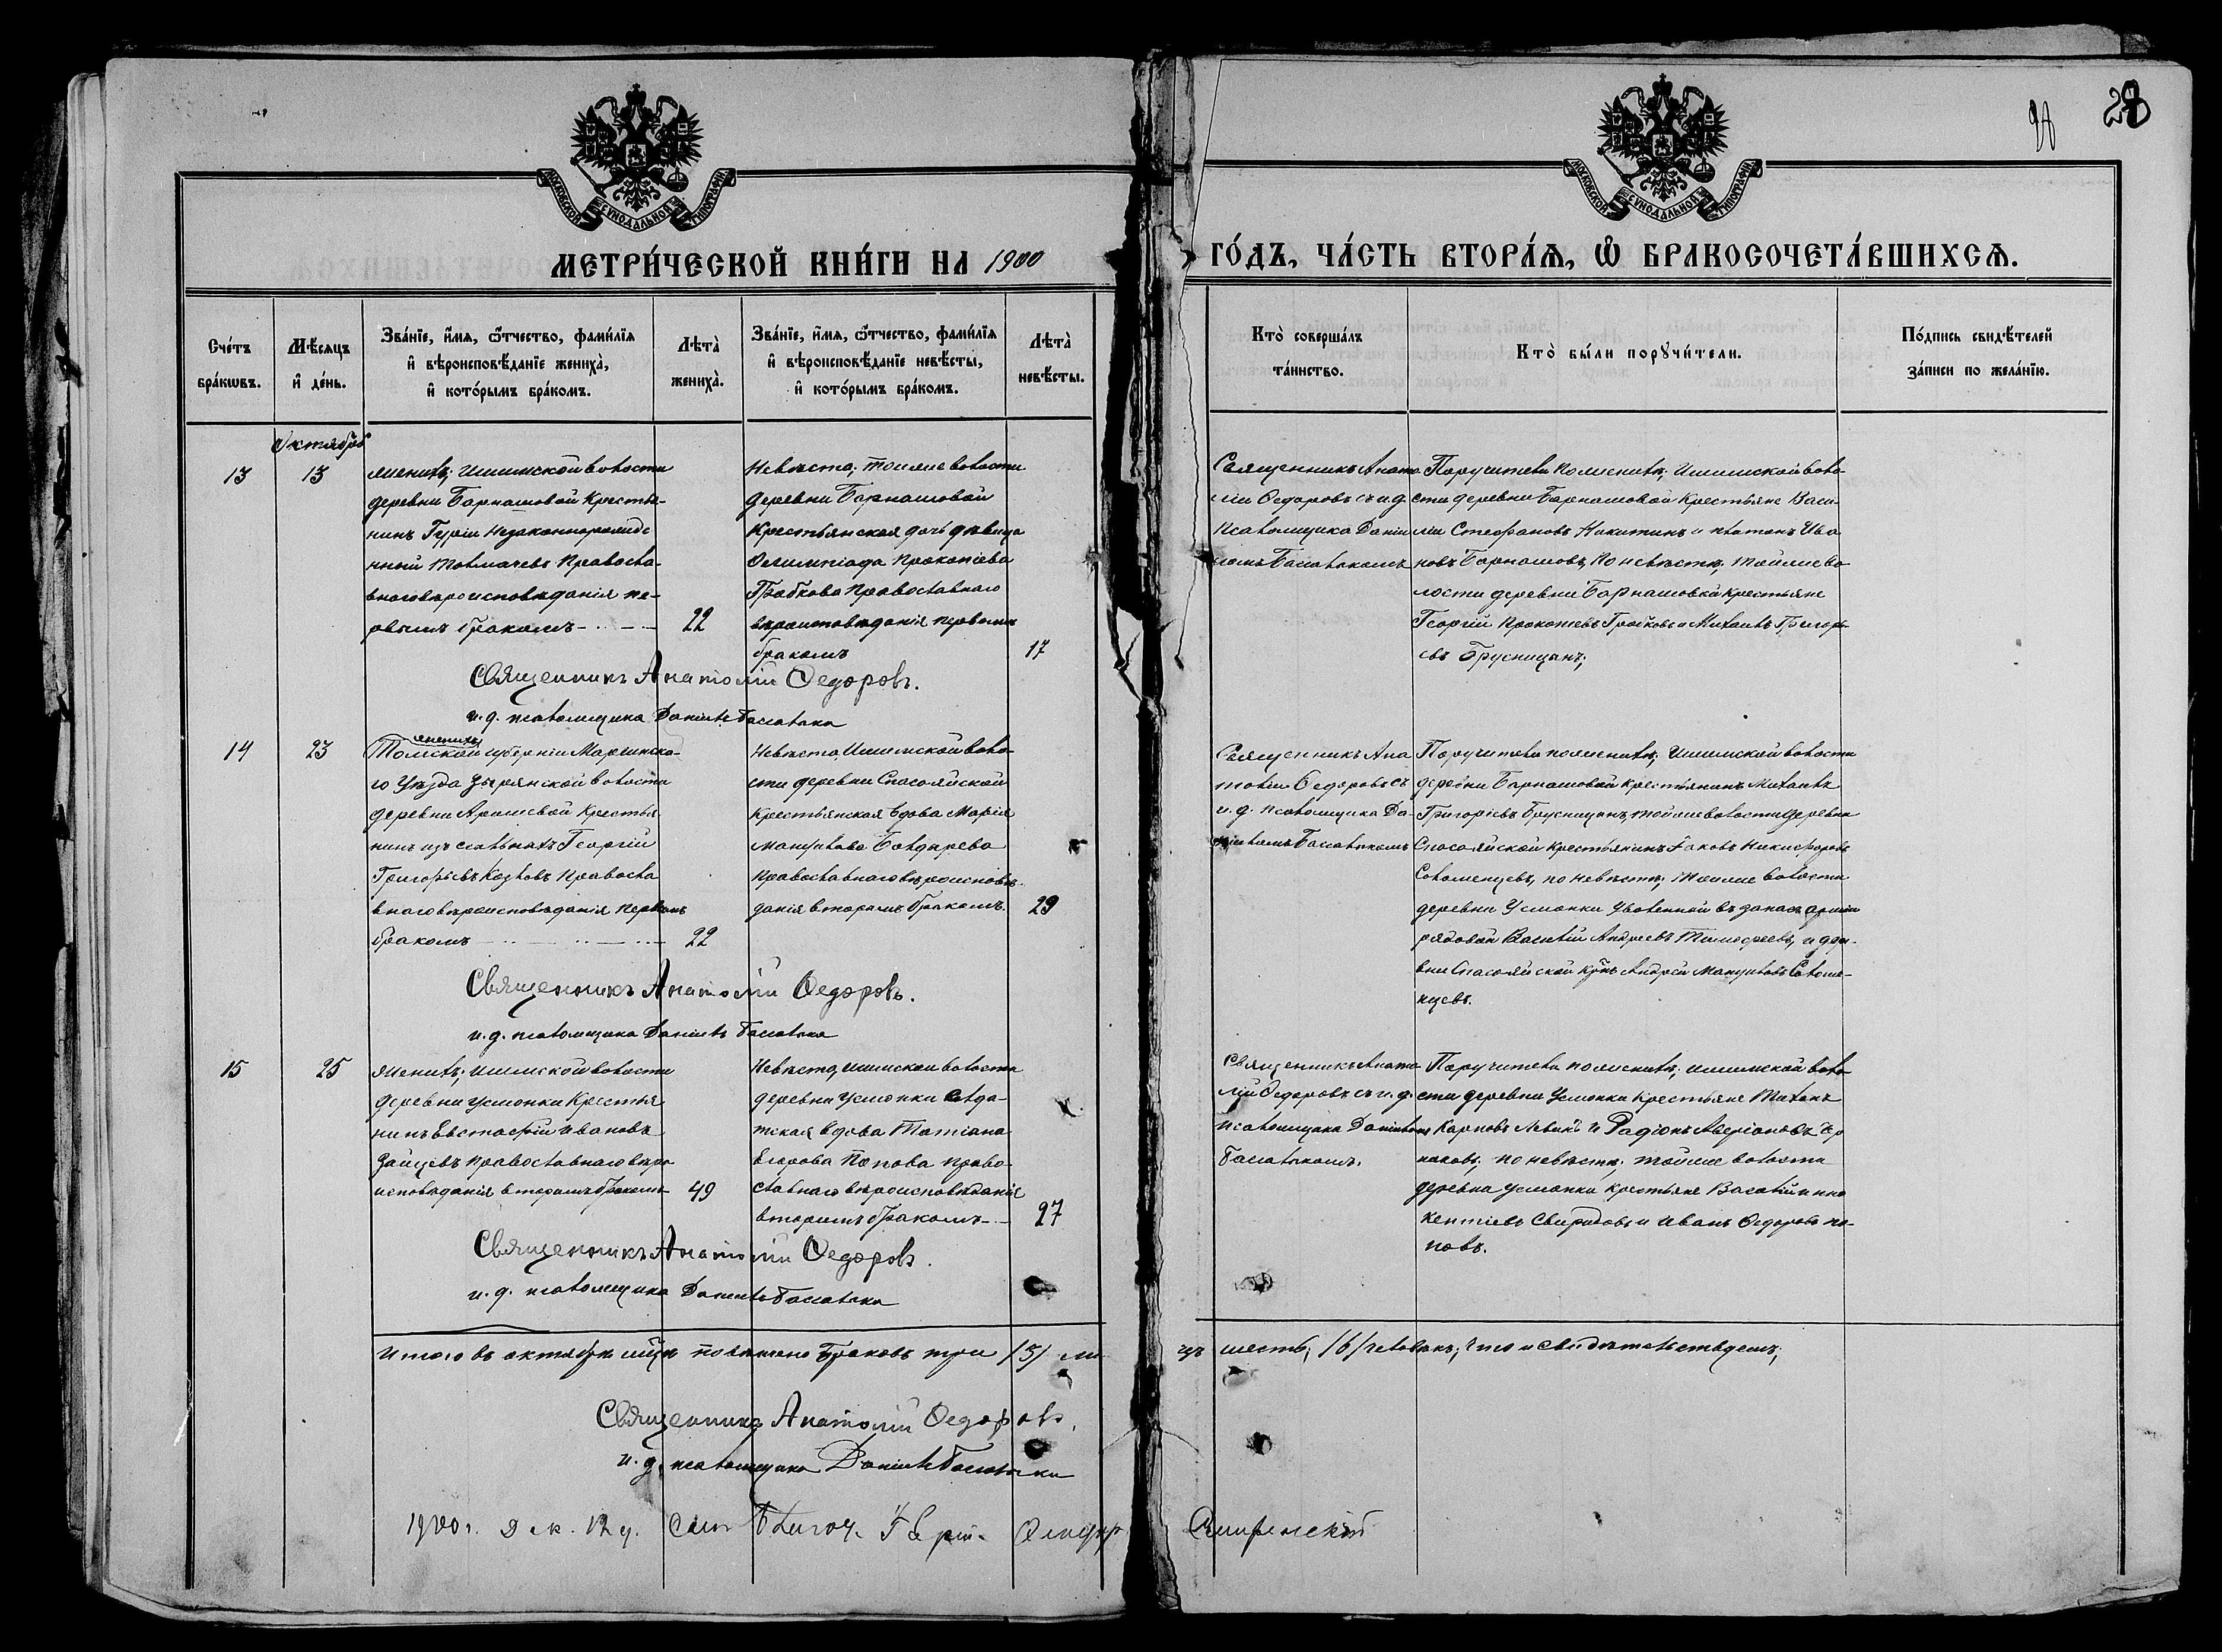 28
МОСКОВСКОЙ СѴНОДАЛЬНОЙ ТИПОГРАФІИ
МОСКОВСКОЙ СѴНОДАЛЬНОЙ ТИПОГРАФІИ
МЕТРИ́ЧЕСКОЙ КНИ́ГИ НА 1900
ГО́ДЪ, ЧА́СТЬ ВТОРА́Ѧ, Ѽ БРАКОСОЧЕТА́ВШИХСѦ.
Сче́тъ бра́кѡвъ.
Мѣ́сяцъ и҆ де́нь.
Зва́нїе, и҆́мѧ, ѻ҆́тчество, фамы́лїѧ
и҆ вѣроисповѣ́данїе жениха̀,
и҆ кото́рымъ бра́комъ.
Лѣта̀ жениха̀.
Зва́нїе, и҆́мѧ, ѻ҆́тчество, фами́лїѧ
и҆ вѣроисповѣ́данїе невѣ́сты,
и҆ кото́рымъ бра́комъ.
Лѣта̀ невѣ́сты.
Кто̀ соверша́лъ
та́инство.
Кто̀ бы́ли порꙋчи́тели.
По́дпись свидѣ́телей
за́писи по жела́нїю.
Октябрь
13
13
Женихъ; Ишимской волости
деревни Барнашовой Крестья-
нинъ Гурій Незаконнорожде
нный Толмачевъ Правосла
внаго вѣроисповѣданія пе-
рвымъ бракомъ
22
Невѣста; тойже волости
деревни Барнашовой
Крестьянская дочь дѣвица
Олимпіада Прокопіева
Грабкова Православнаго
вѣроисповѣданія первымъ
бракомъ
17
Священникъ Анато
лій Ѳедоровъ съ и.д.
Псаломщика Даніи
ломъ
Поручители по женихѣ; Ишимской воло
сти деревни Барнашовой Крестьяне Васи
лій Стефановъ Никитинъ и Платонъ Ива
новъ Барнашовъ, по невѣстѣ; тойже во
лости деревни Барнашовой крестьяне
Георгій Прокопьевъ Грабковъ и Михаилъ Григорь
евъ Брусницынъ;
Священникъ Анатолій Ѳедоровъ.
и.д. псаломщика Даніилъ
14
23
женихъ
Томской губерніи Маріинска-
го Уѣзда Зырянской волости
деревни Крестья
нинъ изъ ссыльныхъ Георгій
Григорьевъ Козловъ Правосла
внаго вѣроисповѣданія первымъ
бракомъ
22
Невѣста, Ишимской воло
сти деревни Спасояйской
Крестьянская вдова Марія
Мануилова Бондарева
православнаго вѣроисповѣ-
данія вторымъ бракомъ.
29
Священникъ Ана
толій Ѳедоровъ съ
и.д. псаломщика Да-
ніиломъ
Поручители по женихѣ; Ишимской волости
деревни Барнашовой крестьянинъ Михаилъ
Григорьевъ Брусницынъ, тойже волости деревни
Спасояйской крестьянинъ Іаковъ Никифоровъ
Соломенцевъ, по невѣстѣ; тойже волости
деревни Усманки Уволенный въ запасъ арміи
рядовой Василій Андреевъ Тимофеевъ, и дере-
вни Спасояйской Андрей Мануиловъ Соломе-
нцевъ.
Священникъ Анатолій Ѳедоровъ.
и.д. псаломщика Даніилъ
15
25
Женихъ; Ишимской волости
деревни Усманки Крестья
нинъ Евстафій Ивановъ
Зайцевъ православнаго вѣро
исповѣданія вторымъ бракомъ
49
Невѣста, Ишимской волости
деревни Усманки Солда-
тская вдова Татіана
Егорова Попова право-
славнаго вѣроисповѣданія
вторымъ бракомъ
27
Священникъ Анато
лій Ѳедоровъ съ и.д.
псаломщика Даніиломъ
Поручители по женихѣ; Ишимской воло
сти деревни Усманки Крестьяне Михаилъ
Карповъ и Радіонъ Аверіановъ
по невѣстѣ; тойже волости
деревни Усманки Крестьяне Василій Инно
кентіевъ Свиридовъ и Иванъ Ѳедоровъ По-
повъ.
Священникъ Анатолій Ѳедоровъ.
и.д. псаломщика Даніилъ
Итого въ октябрѣ м̃цѣ повѣнчано Браковъ три /3/ ли
цъ шесть, /6/ человѣкъ; что и свидѣтельствуемъ;
Священникъ Анатолій Ѳедоровъ,
и.д. псаломщика Даніилъ
1900 г. Дек. 12 д.